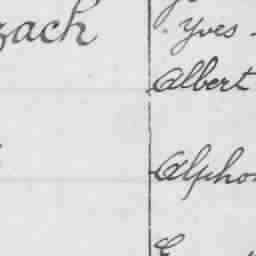 zach
Yves -
Albert
Alpho